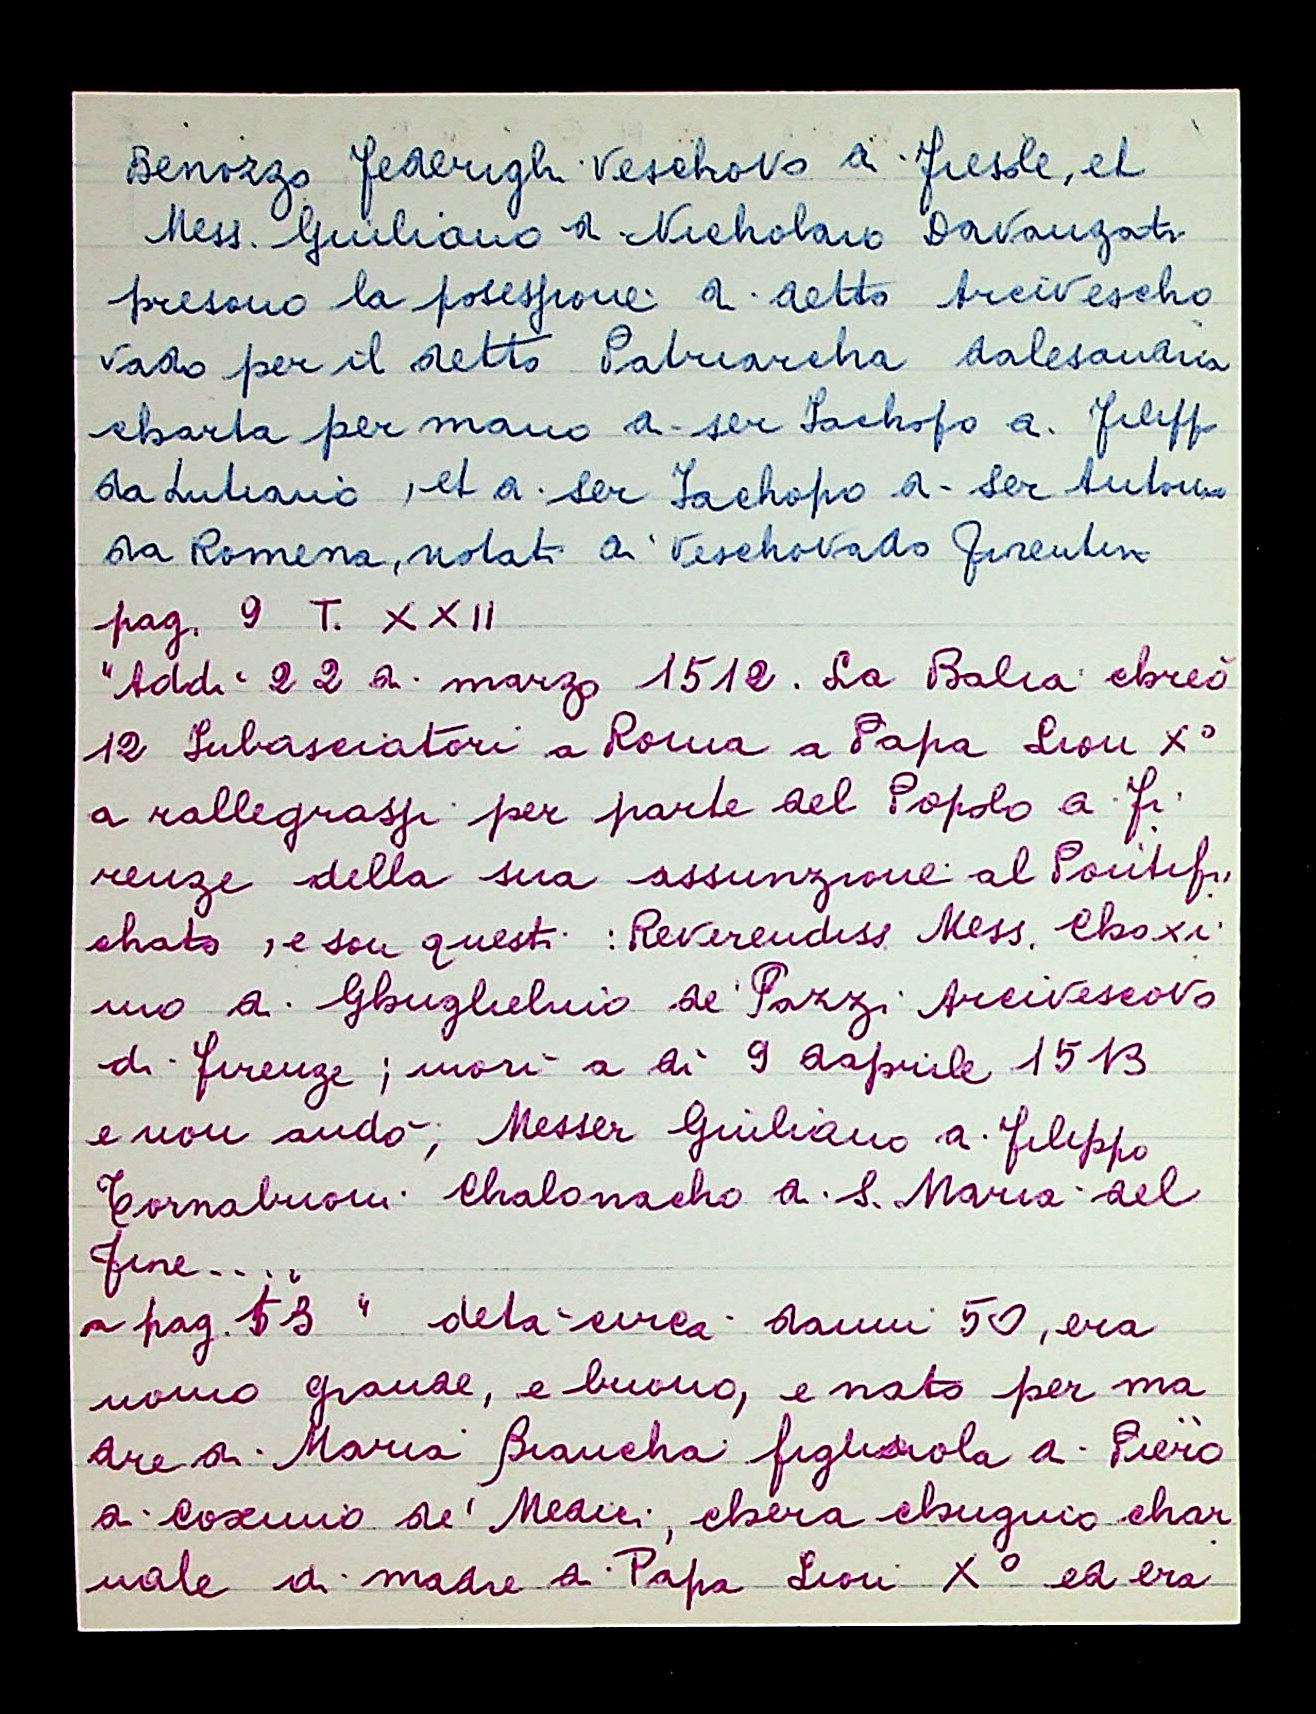 Benozzo Federighi Veschovo di Fiesole, et
Mess. Giuliano di Nicholaio Davanzati
presono la posessione di detto Arcivescho
vado per il detto Patriarcha dalesandria
charta per mano di ser Iachopo di Filipp
da Lutiano, et di ser Iachopo di ser Antonio
da Romena, notai di Veschovado Firentin
pag. 9 T. XXII
"Addi 22 di marzo 1512. La Balia chreò
12 Imbasciatori a Roma a Papa Lion X°
a rallegrassi per parte del Popolo di Fi
renze della sua assunzione al Pontifi
chato, e son questi: Reverendiss Mess. Choxi
mo di Ghuglielmo de' Pazzi Arcivescovo
di Firenze; morì a dì 9 daprile 1513
e non andò; Messer Giuliano di Filippo
Tornabuoni Chalonacho di S. Maria del
Fine....
a pag. 13 " detà circa danni 50, era
uomo grande, e buono, e nato per ma
dre di Maria Biancha figliuola di Piero
di Coximo de' Medici, chera chugino char
nale di madre di Papa Lion X° ed era